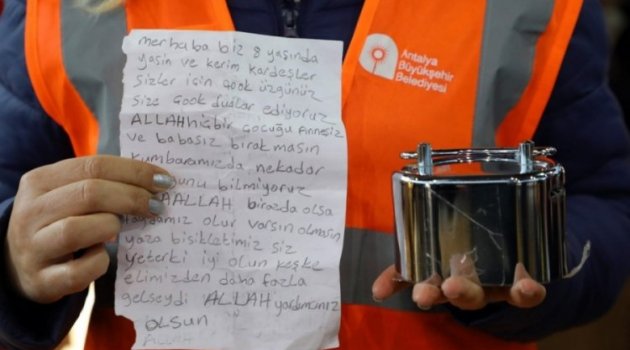 merhaba biz 8 yaşında
yasin ve kerim kardeşler
sizler için çook üzgünüz
size çook dualar ediyoruz
ALLAH hiçbir çocuğu Annesiz
ve babasız bırakmasın
kumbaramızda nekadar
bilmiyoruz
AALLAH birazda olsa
faydamız olur varsın olmasın
yaza bisikletimiz siz
yeterki iyi olun keşke
elimizden daha fazla
gelseydi ALLAH yardımcınız
olsun
ALLAH
Antalya
Büyükşehir
Belediyesi